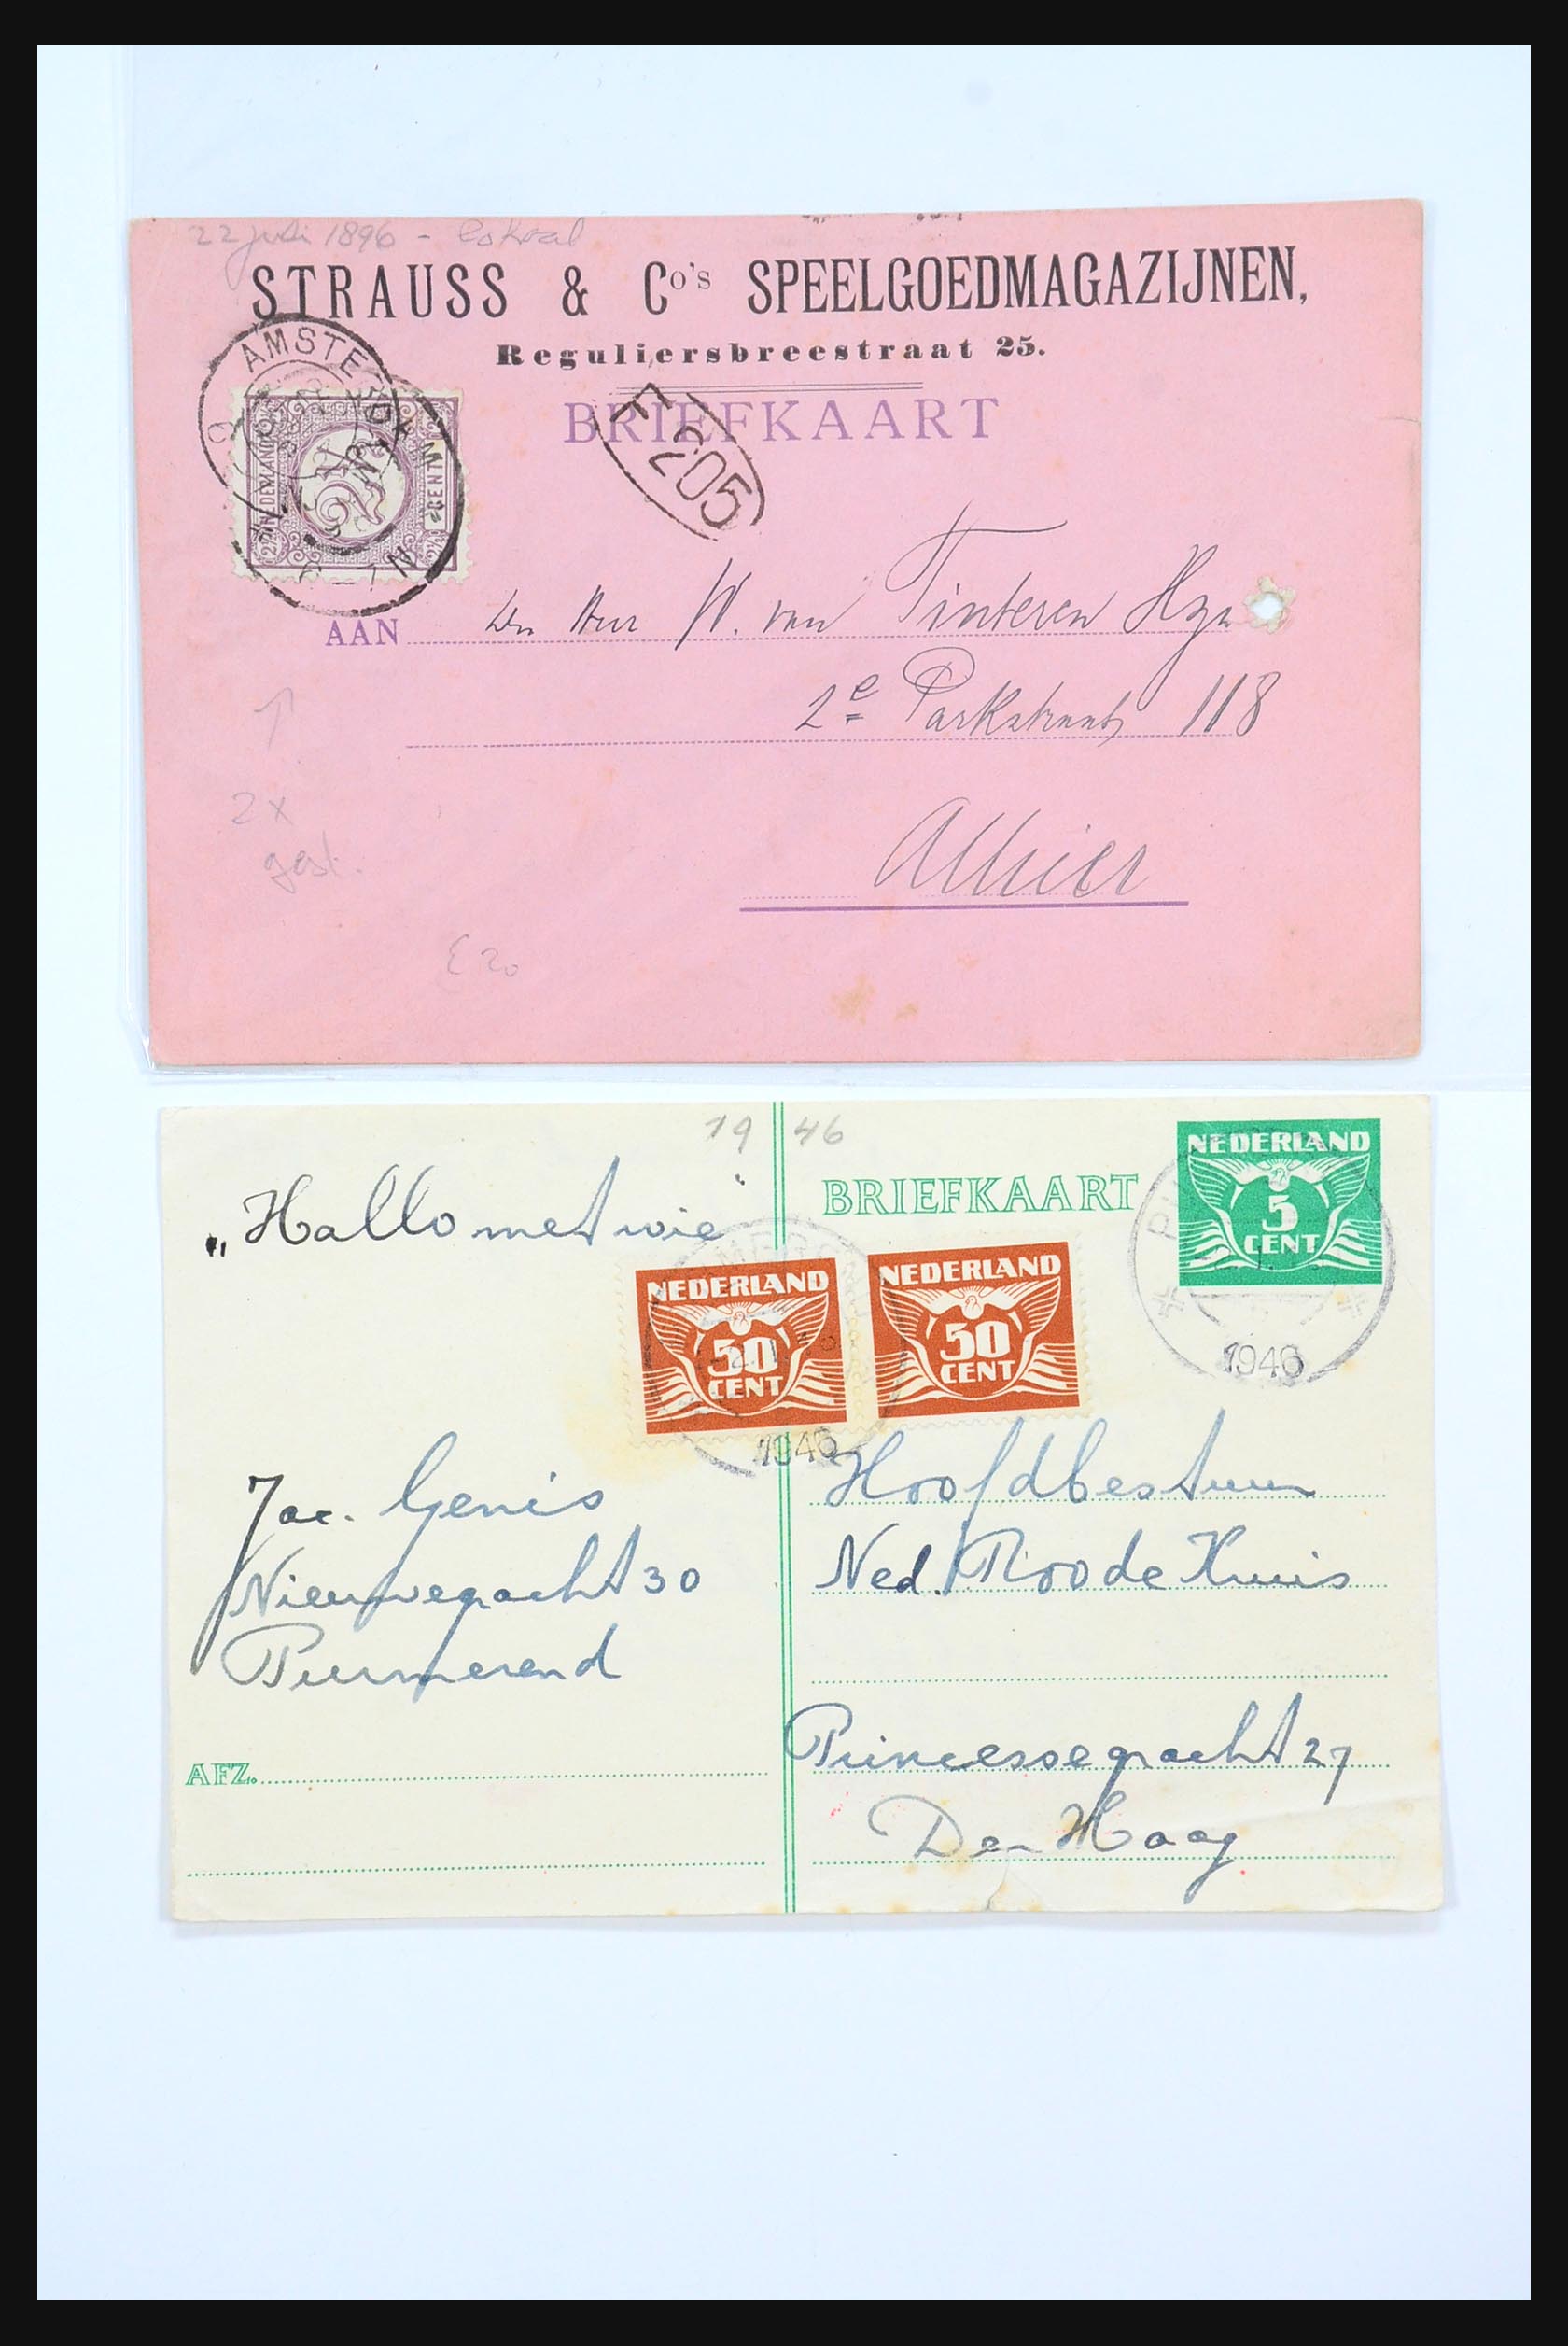 22 juli 1896 - lokaal
STRAUSS & Co's SPEELGOEDMAGAZIJNEN,
Reguliersbreestraat 25.
BRIEFKAART
AMSTERDAM
NEDERLAND
CENT
2½
6-7N
E205
AAN Den Heer W. van Tinteren Hzn
2e Parkstraat 118
Alhier
2x
gest.
£20
1946
BRIEFKAART
NEDERLAND
5
CENT
1946
„Hallo met wie"
NEDERLAND
50
CENT
NEDERLAND
50
CENT
1946
Jac. Genis
Nieuwegracht 30
Purmerend
AFZ.
Hoofdbestuur
Ned. Roode Kruis
Princessegracht 27
Den Haag